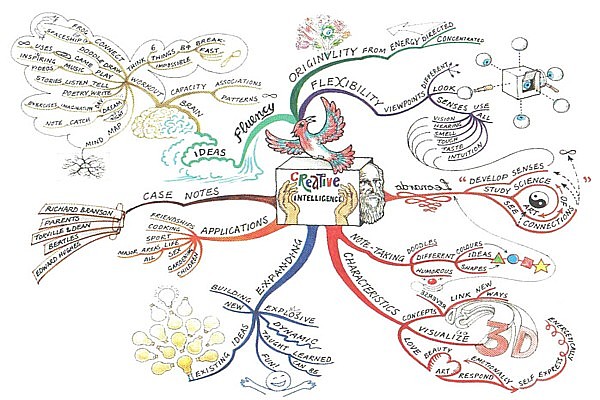 CREATIVE
INTELLIGENCE
ORIGINALITY FROM ENERGY DIRECTED
CONCENTRATED
FLEXIBILITY
VIEWPOINTS DIFFERENT
LOOK
SENSES USE
ALL
VISION
HEARING
SMELL
TOUCH
TASTE
INTUITION
Leonardo
"DEVELOP SENSES
STUDY SCIENCE
OF
ART
SEE CONNECTIONS"
NOTE-TAKING
DOODLES
DIFFERENT
HUMOROUS
COLOURS
IDEAS
SHAPES
CHARACTERISTICS
CONCEPTS
LINK NEW
WAYS
VISUALIZE
3D
LOVE
BEAUTY
ART
RESPOND
EMOTIONALLY
SELF EXPRESS
ENERGETICALLY
EXPANDING
BUILDING
NEW
EXISTING IDEAS
EXPLOSIVE
DYNAMIC
TAUGHT
LEARNED
CAN BE
FUN!
APPLICATIONS
FRIENDSHIPS
COOKING
SPORT
MAJOR AREA LIFE
ALL
SEX
GARDENING
CHILDREN
CASE NOTES
RICHARD BRANSON
PARENTS
TORVILLE & DEAN
BEATLES
EDWARD HUGHES
Fluency
IDEAS
BRAIN
CAPACITY
ASSOCIATIONS
PATTERNS
WORKOUT
THINK
6
THINGS
84
BREAK-
FAST
IMPOSSIBLE
CONNECT
FROG
SPACESHIP
DOODLE DRAW
USES
GAME PLAY
INSPIRING
VIDEOS
MUSIC
STORIES, LISTEN, TELL
POETRY, WRITE
EXERCISES, IMAGINATION
DAY
DREAM
NOTE CATCH
MIND MAP